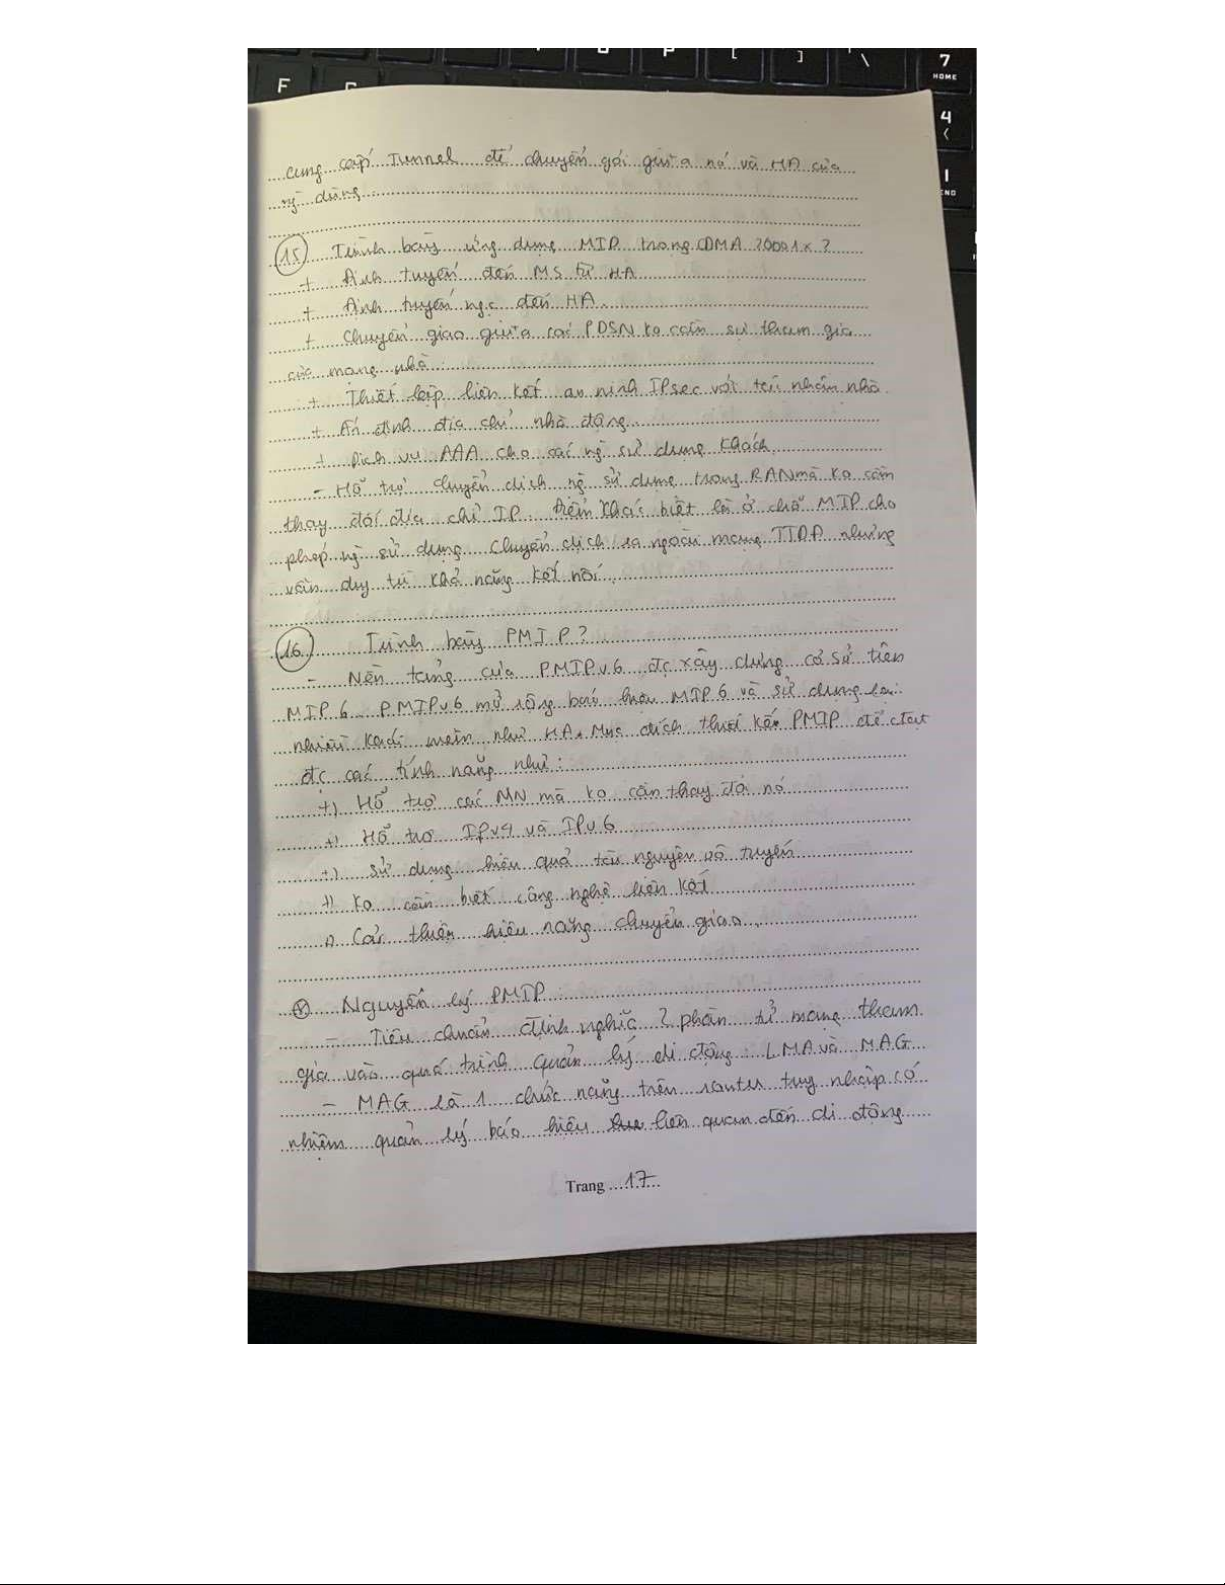 P [ ] \ 7
HOME
F
4
1
END
cung cấp Tunnel để chuyển gói giữa nó và HA của
ng dùng
15 Trình bày ứng dụng MIP trong CDMA 2000 1x ?
+ Định tuyến đến MS từ HA
+ Định tuyến ngc đến HA
+ Chuyển giao giữa các PDSN ko cần sự tham gia
của mạng nhà
+ Thiết lập liên kết an ninh IPsec với tác nhân nhà
+ Ấn định địa chỉ nhà động
+ Dịch vụ AAA cho các ng sử dụng khách
- Hỗ trợ chuyển dịch ng sử dụng trong RAN mà ko cần
thay đổi địa chỉ IP. Điểm khác biệt là ở chỗ MIP cho
phép ng sử dụng chuyển dịch ra ngoài mạng TTDĐ nhưng
vẫn duy trì khả năng kết nối
16 Trình bày PMIP ?
- Nền tảng của PMIPv6 đc xây dựng cơ sử trên
MIP6. PMIPv6 mở rộng báo hiệu MIP6 và sử dụng lại
nhiều như HA. Mục đích thiết kế PMIP để đạt
đc các tính năng như :
+) Hỗ trợ các MN mà ko cần thay đổi nó
+) Hỗ trợ IPv4 và IPv6
+) Sử dụng hiệu quả tài nguyên vô tuyến
+) Ko cần biết công nghệ liên kết
+) Cải thiện hiệu năng chuyển giao
* Nguyên lý PMIP
- Tiêu chuẩn định nghĩa 2 phần tử mạng tham
gia vào quá trình quản lý di động : LMA và MAG
- MAG là 1 chức năng trên router truy nhập có
nhiệm quản lý báo hiệu liên quan đến di động
Trang 17